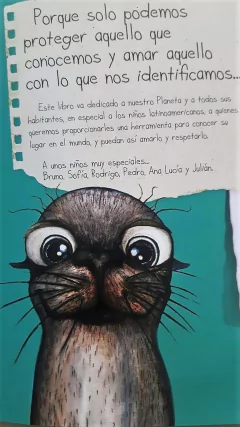 Porque solo podemos
proteger aquello que
conocemos y amar aquello
con lo que nos identificamos...
Este libro va dedicado a nuestro Planeta y a todos sus
habitantes, en especial a los niños latinoamericanos, a quienes
queremos proporcionarles una herramienta para conocer su
lugar en el mundo, y puedan así amarlo y respetarlo.
A unos niños muy especiales...
Bruno, Sofía, Rodrigo, Pedro, Ana Lucía y Julián.